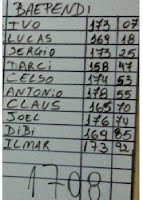 BAEPENDI
IVO 173 07
LUCAS 169 18
SERGIO 173 25
DARCI 158 47
CELSO 174 53
ANTONIO 178 55
CLAUS 165 70
JOEL 176 74
DIBI 169 85
ILMAR 173 92
1708